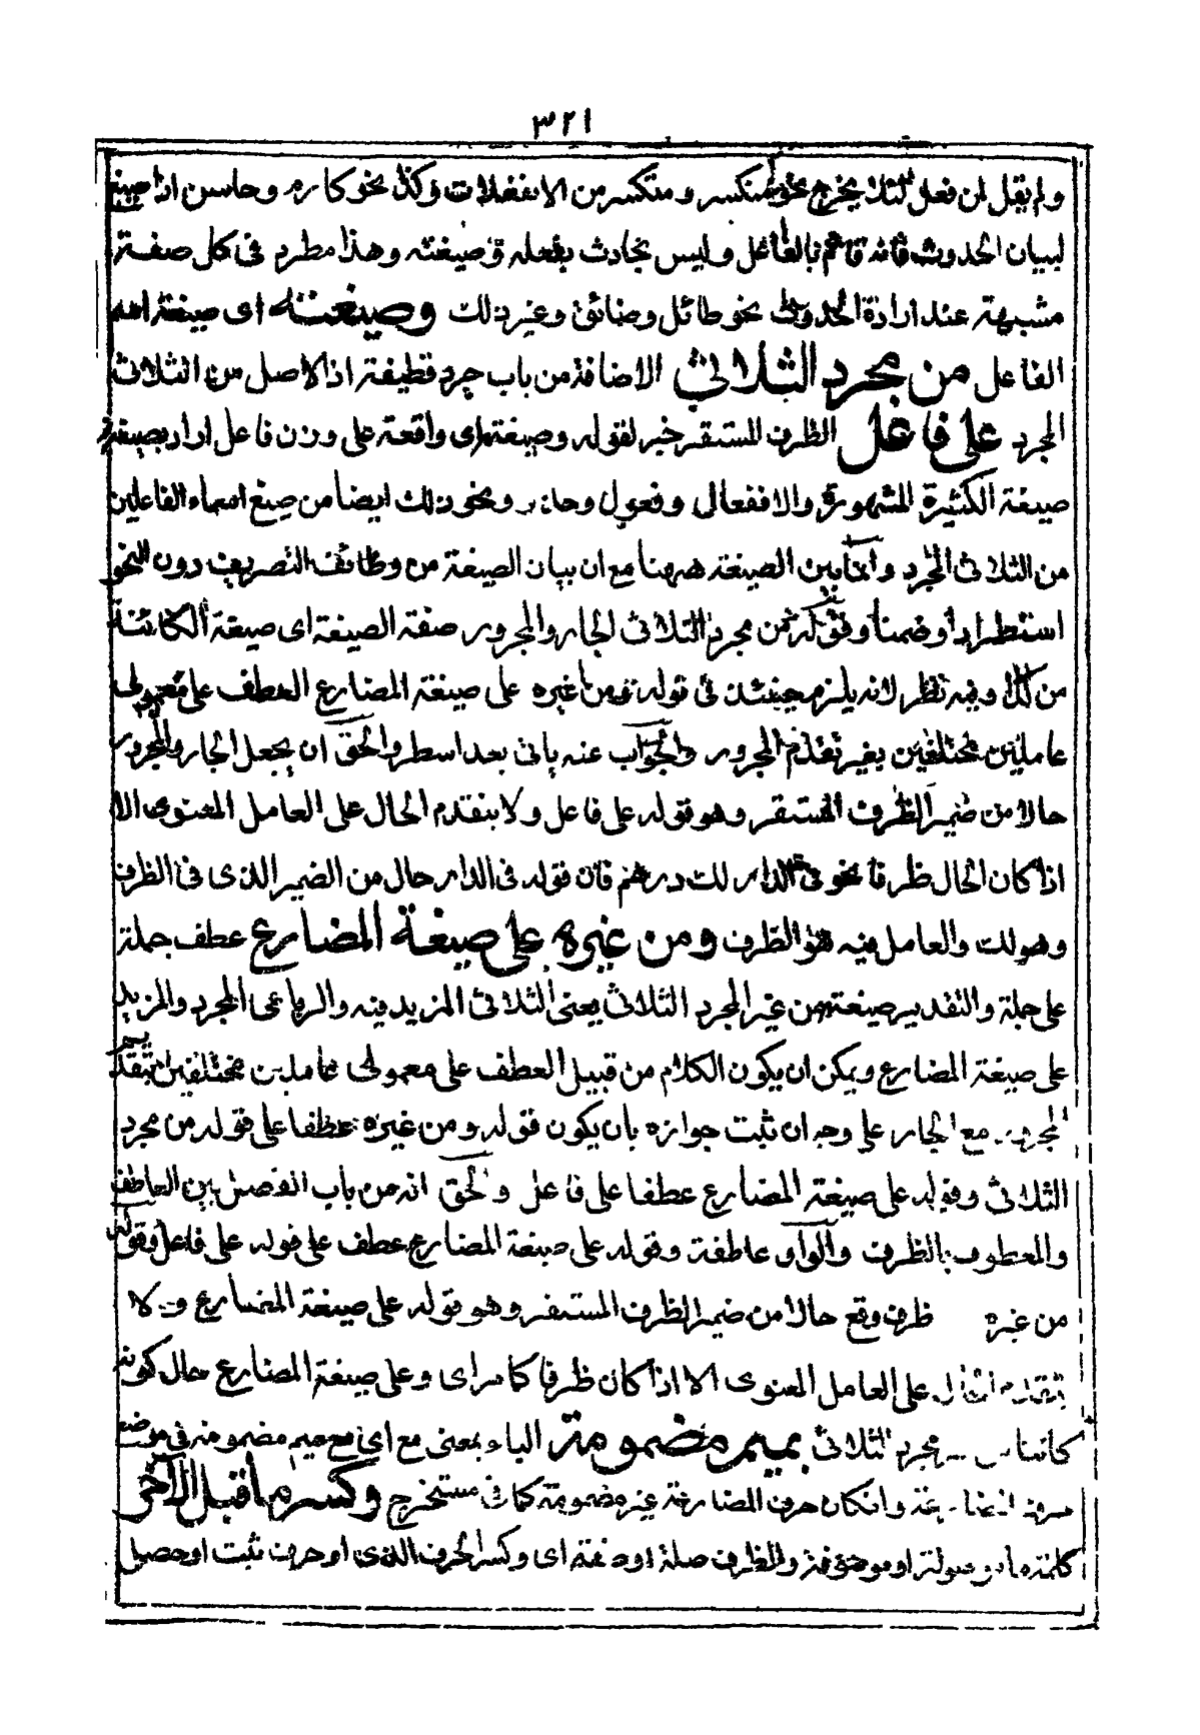 ٣٢١
ولم يقل من فعل لئلا يخرج نحو منكسر ومتكسر من الانفعالات وكذا نحو كارم وحاسن اذا صيغ
لبيان الحدوث فانه قائم بالفاعل وليس بحادث بفعله وصيغته وهذا مطرد فى كل صفة
مشبهة عند ارادة الحدوث نحو طائل وضائق وغير ذلك وصيغته اى صيغة اسم
الفاعل من مجرد الثلاثى الاضافة من باب جرد قطيفة اذ الاصل من الثلاثى
المجرد على فاعل الظرف المستقر خبر لقوله وصيغته اى واقعة على وزن فاعل اراد بصيغته
صيغة الكثيرة المشهورة والا ففعال وفعول وحاذر ونحو ذلك ايضا من صيغ اسماء الفاعلين
من الثلاثى المجرد وانما بين الصيغة ههنا مع ان بيان الصيغة من وظائف التصريف دون النحو
استطرادا وضمنا وقوله من مجرد الثلاثى الجار والمجرور صفة الصيغة اى صيغة الكائنة
من كذا وفيه نظر لانه يلزم حينئذ فى قوله ومن غيره على صيغة المضارع العطف على معمولى
عاملين مختلفين بغير تقدم المجرور والجواب عنه يأتى بعد اسطر والحق ان يجعل الجار والمجرور
حالا من ضمير الظرف المستقر وهو قوله على فاعل ولا يتقدم الحال على العامل المعنوى الا
اذا كان الحال ظرفا نحو فى الدار لك درهم فان قوله فى الدار حال من الضمير الذى فى الظرف
وهو لك والعامل فيه هو الظرف ومن غيره على صيغة المضارع عطف جملة
على جملة والتقدير صيغته من غير المجرد الثلاثى يعنى الثلاثى المزيد فيه والرباعى المجرد والمزيد
على صيغة المضارع ويمكن ان يكون الكلام من قبيل العطف على معمولى عاملين مختلفين بتقديم
المجرور مع الجار على وجه ان ثبت جوازه بان يكون قوله ومن غيره عطفا على قوله من مجرد
الثلاثى وقوله على صيغة المضارع عطفا على فاعل والحق انه من باب الفصل بين العاطف
والمعطوف بالظرف والواو عاطفة وقوله على صيغة المضارع عطف على قوله على فاعل وقوله
من غيره ظرف وقع حالا من ضمير الظرف المستقر وهو قوله على صيغة المضارع ولا
يتقدم الحال على العامل المعنوى الا اذا كان ظرفا كما مر اى وعلى صيغة المضارع حال كونه
كائنا من مجرد الثلاثى بميم مضمومة الباء بمعنى مع اى مع ميم مضمومة فى موضع
حرف المضارعة وان كان حرف المضارعة غير مضمومة كما فى مستخرج وكسر ما قبل الآخر
كلمة ما موصولة او موصوفة والظرف صلة او صفة اى وكسر الحرف الذى او حرف ثبت او حصل